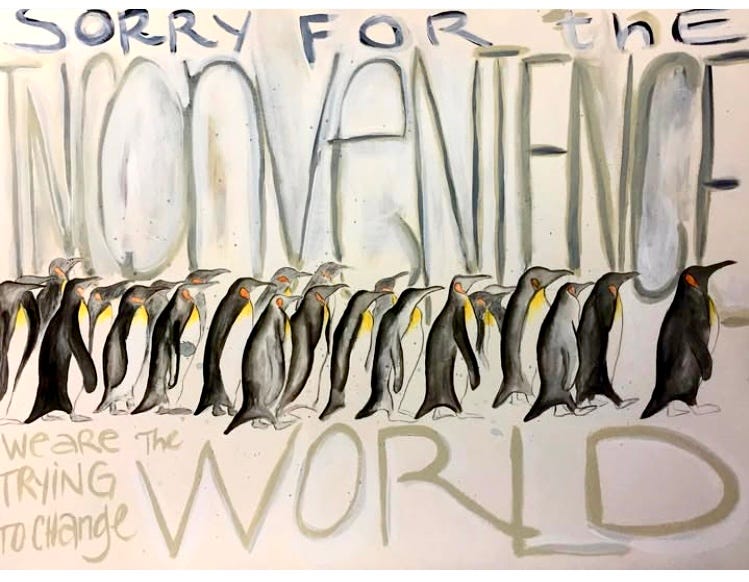 SORRY FOR thE
INCOnVENIENCE
We ARE The
TRYING
TO CHAnge
WORLD